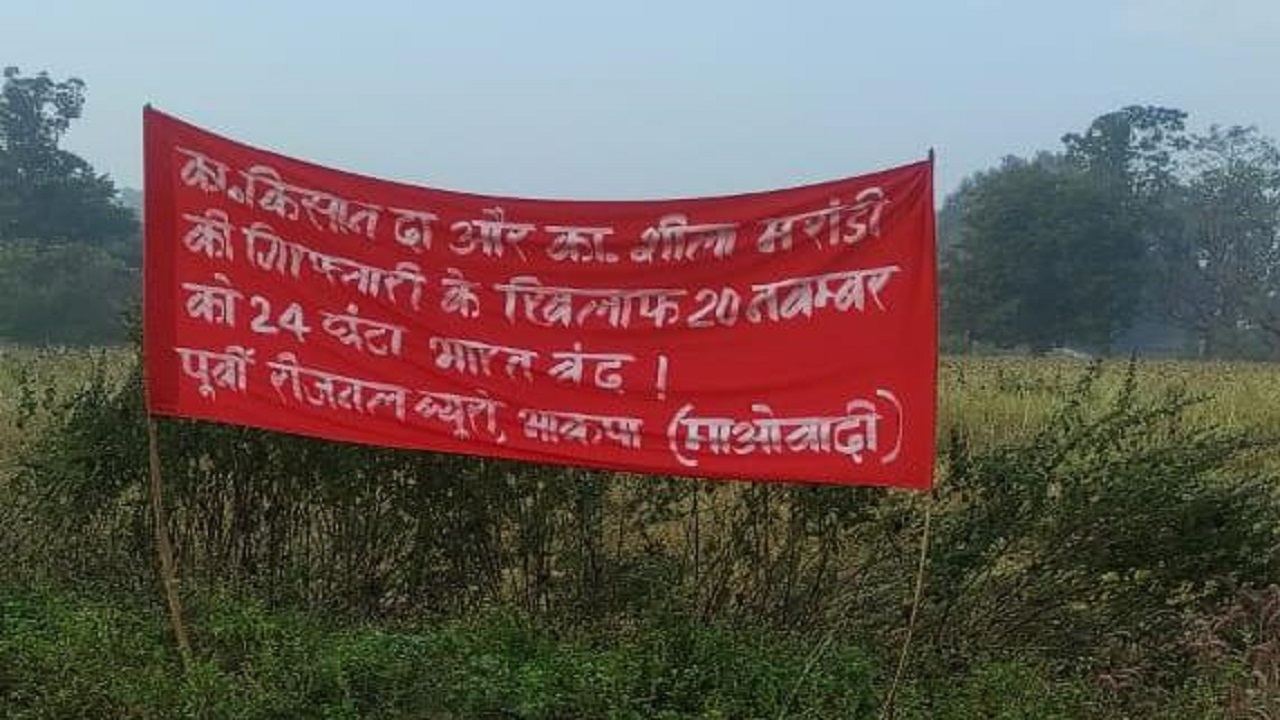 का. किसान दा और का. शीला मरांडी
की गिरफ्तारी के खिलाफ 20 नवम्बर
को 24 घंटा भारत बंद !
पूर्वी रीजनल ब्यूरो, भाकपा (माओवादी)